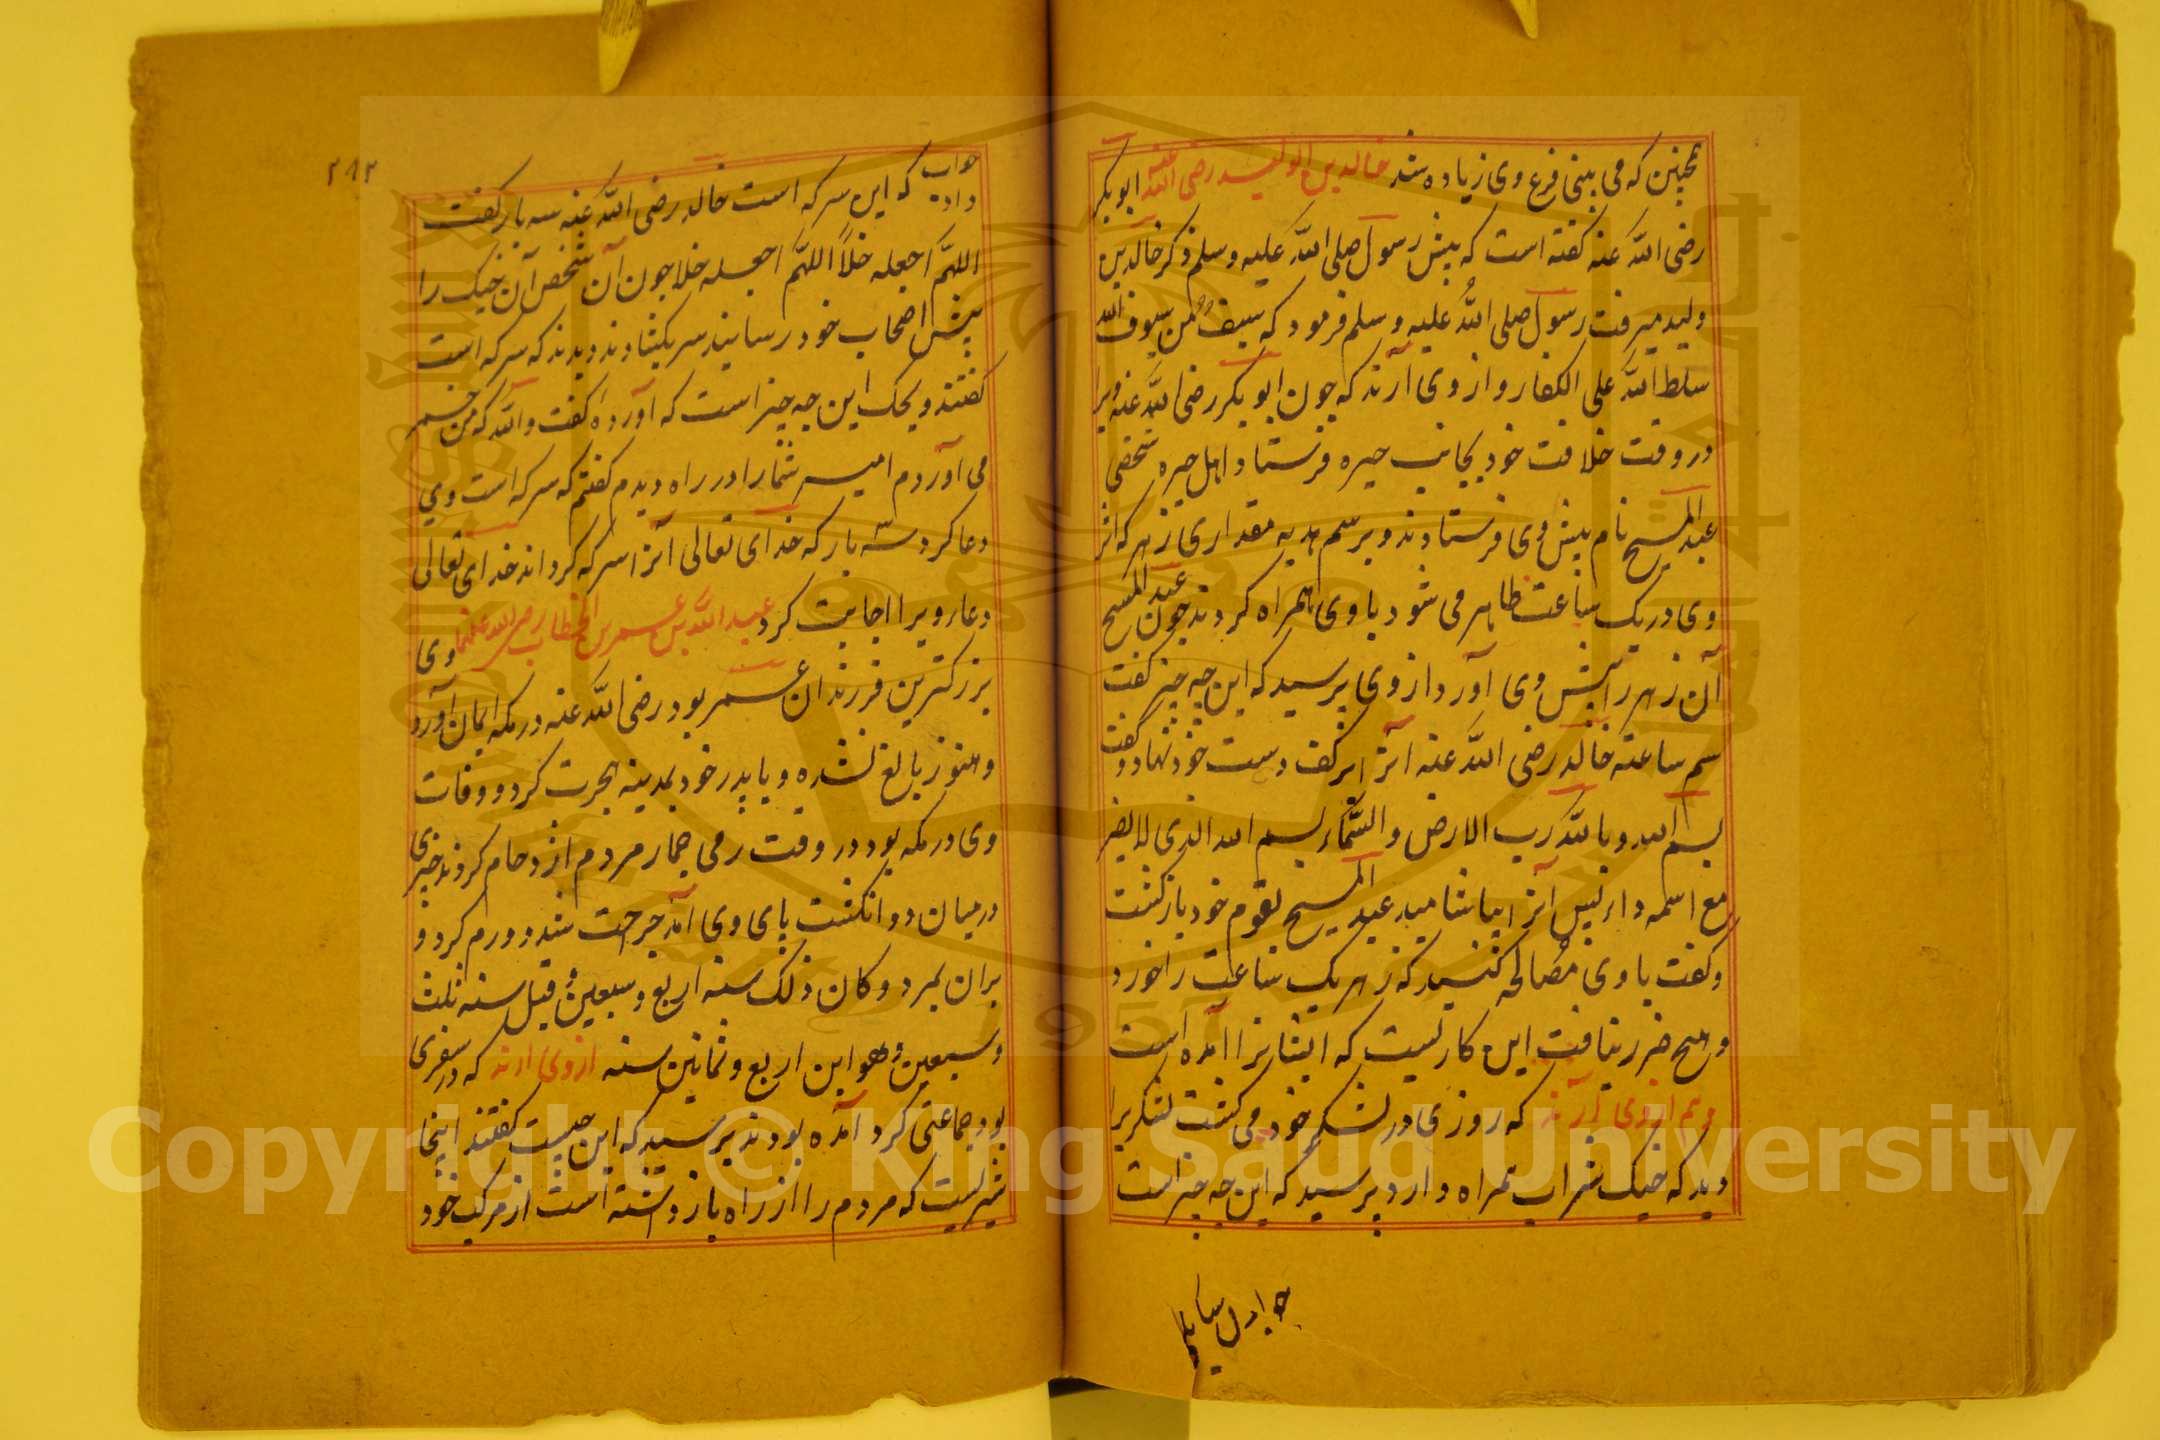 همچنین که می بینی فزع وی زیاده شد خالد بن الولید رضی الله عنه ابو بکر
رضی الله عنه کفته است که پیش رسول صلی الله علیه وسلم ذکر خالد بن
ولید میرفت رسول صلی الله علیه وسلم فرمود که سیف من سیوف الله
سلط الله علی الکفار و از وی آرند که چون ابو بکر رضی الله عنه ویرا
در وقت خلافت خود بجانب حیره فرستاد اهل حیره شخصی
عبد المسیح نام پیش وی فرستادند و برسم هدیه مقداری زهر که اثر
وی در یک ساعت ظاهر می شود با وی همراه کردند چون عبد المسیح
آن زهر را پیش وی آورد از وی پرسید که این چه چیز کفت
سم ساعته خالد رضی الله عنه آنرا بر کف دست خود نهاد و کفت
بسم الله وبالله رب الارض والسماء بسم الله الذی لا یضر
مع اسمه داء پس آنرا بیاشامید عبد المسیح بقوم خود باز کشت
و کفت با وی مصالحه کنید که زهر یک ساعت را خورد
و هیچ ضرر نیافت این کاریست که ایشانرا آمده است
و هم از وی آرند که روزی در لشکر خود می کشت لشکریرا
دید که خیک شراب همراه دارد پرسید که این چه چیز است
۲۸۲
جواب داد که این سرکه است خالد رضی الله عنه سه بار کفت
اللهم اجعله خلا اللهم اجعله خلا چون آن شخص آن خیک را
پیش اصحاب خود رسانید سر بکشادند دیدند که سرکه است
کفتند ویحک این چه چیز است که آورده کفت والله که من خمر
می آوردم امیر شما را در راه دیدم کفتم که سرکه است وی
دعا کرد سه بار که خدای تعالی آنرا سرکه کرداند خدای تعالی
دعاء ویرا اجابت کرد عبد الله بن عمر بن الخطاب رضی الله عنهما وی
بزرکترین فرزندان عمر بود رضی الله عنه در مکه ایمان آورد
و هنوز بالغ نشده و با پدر خود بمدینه هجرت کرد و وفات
وی در مکه بود در وقت رمی جمار مردم ازدحام کردند چیزی
در میان دو انکشت پای وی آمد جراحت شد و ورم کرد و
بران بمرد وکان ذلک سنه اربع وسبعین وقیل سنه ثلث
وسبعین وهو ابن اربع وثمانین سنه از وی ارند که در سفری
بود جماعتی کرد آمده بودند پرسید که این چیست کفتند اینجا
شیریست که مردم را از راه باز داشته است از مرکب خود
Copyright © King Saud University
1957